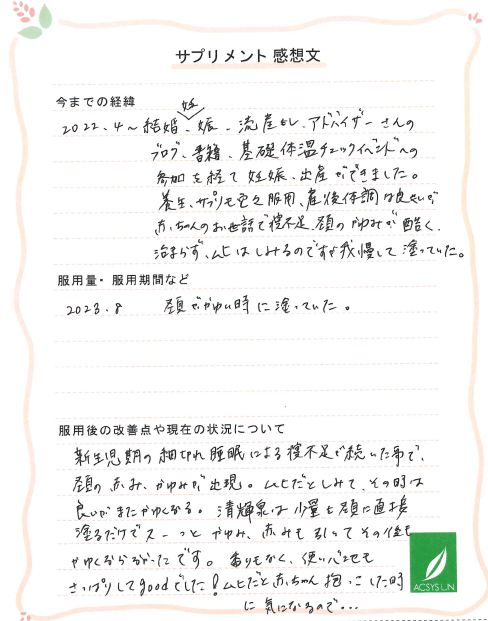 サプリメント 感想文
今までの経緯
2022.4〜結婚、妊娠、流産をし、アドバイザーさんの
ブログ、書籍、基礎体温チェックイベントへの
参加を経て妊娠、出産ができました。
養生、サプリも色々服用、産後体調は良いが
赤ちゃんのお世話で寝不足、顔のかゆみが酷く、
治まらず、ムヒはしみるのですが我慢して塗っていた。
服用量・服用期間など
2023.8 顔がかゆい時に塗っていた。
服用後の改善点や現在の状況について
新生児期の細切れ睡眠による寝不足が続いた事で、
顔の赤み、かゆみが出現。ムヒだとしみて、その時は
良いがまたかゆくなる。清輝泉は少量を顔に直接
塗るだけでスーっとかゆみ、赤みも引ってその後も
かゆくならなかったです。香りもなく、使い心地も
さっぱりしてgoodでした!ムヒだと赤ちゃん抱っこした時
に気になるので…
ACSYS UN